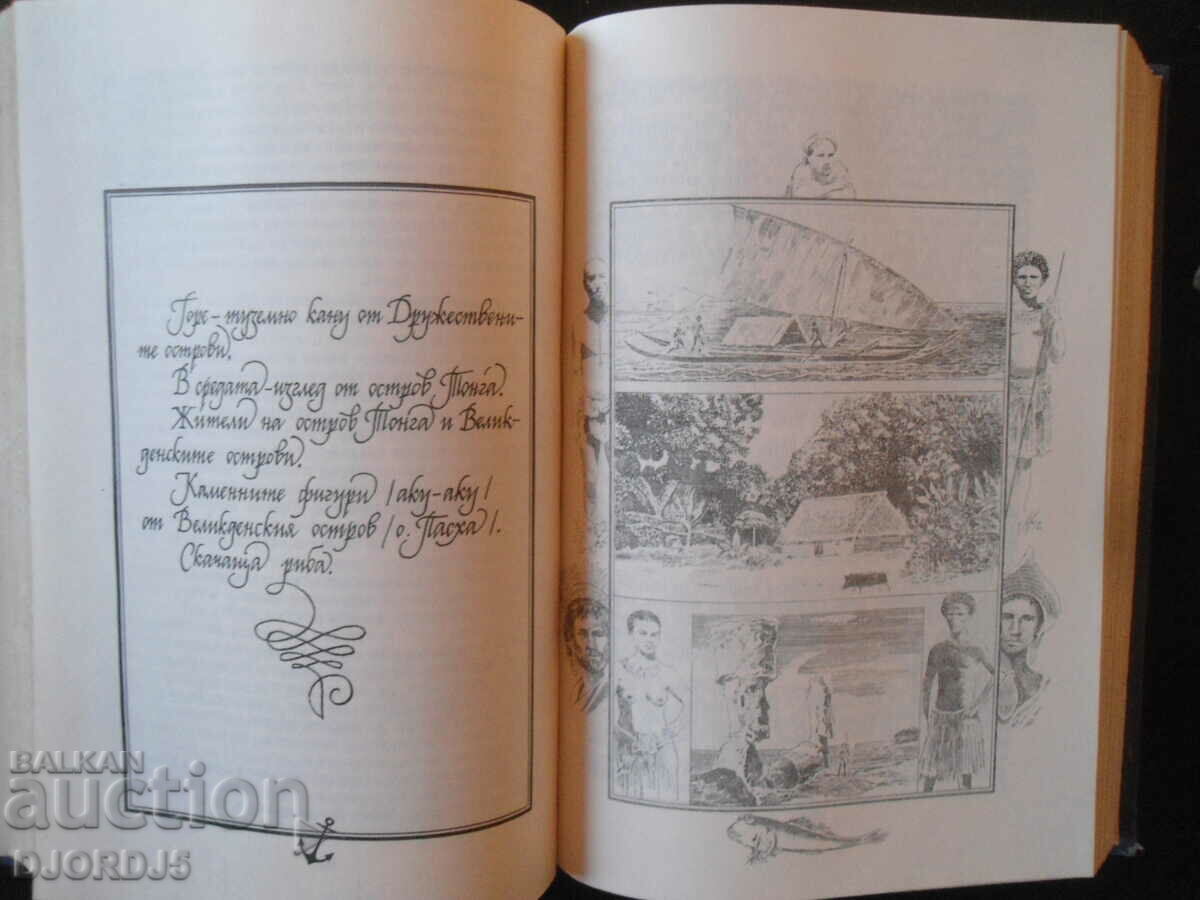 Горе - туземно кану от Дружествени-
те острови.
В средата - изглед от остров Тонга.
Жители на остров Тонга и Велик-
денските острови.
Каменните фигури /аку-аку/
от Великденския остров /о. Пасха/.
Скачаща риба.
BALKAN
auction
DJORDJ5